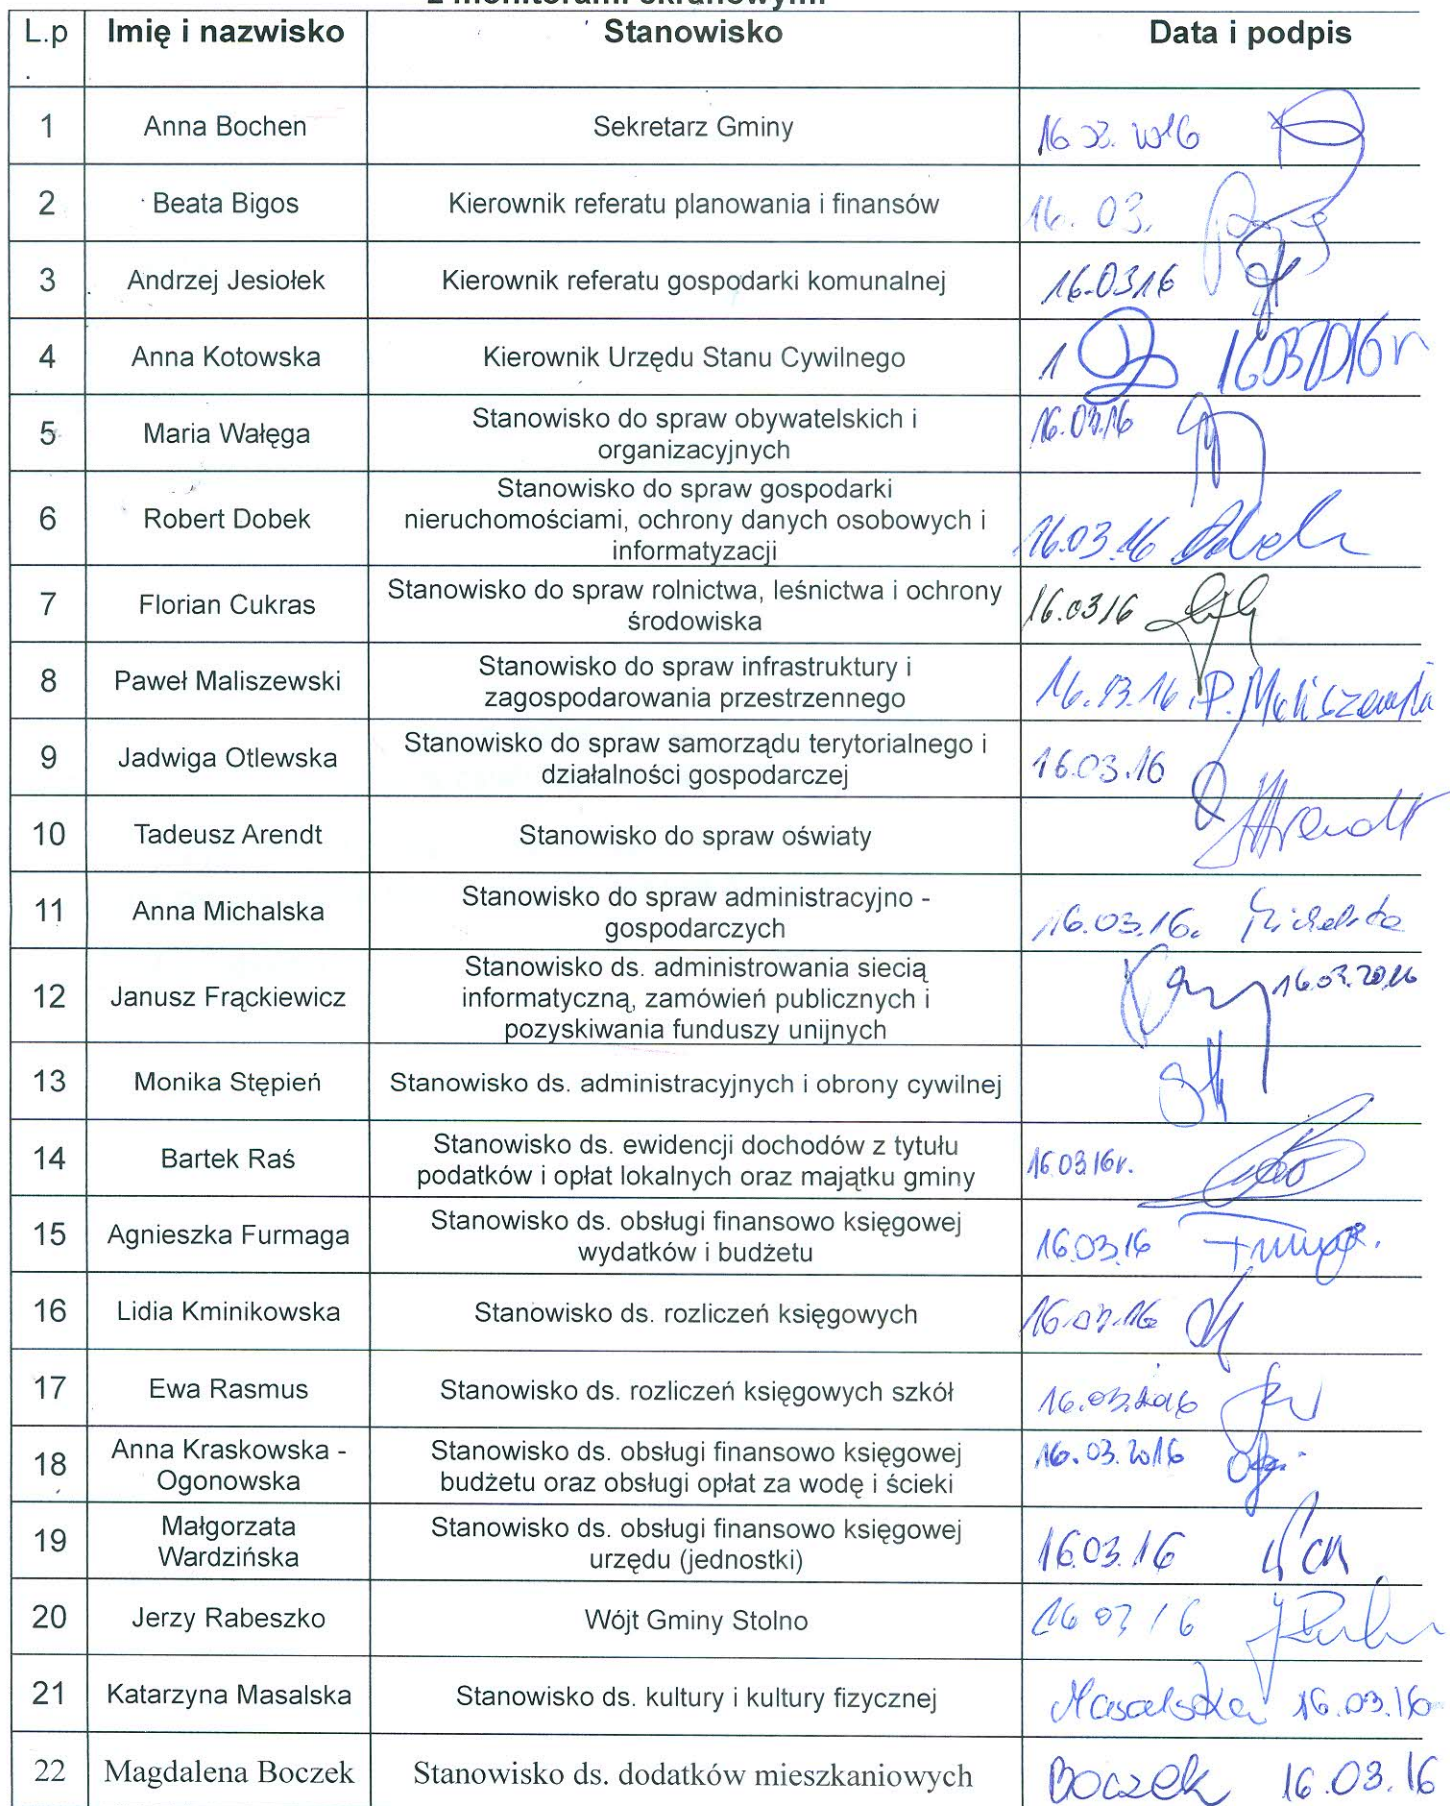 z monitorami ekranowymi
L.p. Imię i nazwisko Stanowisko Data i podpis
1 Anna Bochen Sekretarz Gminy 16.03.2016
2 Beata Bigos Kierownik referatu planowania i finansów 16.03.
3 Andrzej Jesiołek Kierownik referatu gospodarki komunalnej 16.03.16
4 Anna Kotowska Kierownik Urzędu Stanu Cywilnego 16.03.2016r
5 Maria Wałęga Stanowisko do spraw obywatelskich i 16.03.16
organizacyjnych
Stanowisko do spraw gospodarki
6 Robert Dobek nieruchomościami, ochrony danych osobowych i 16.03.16
informatyzacji
7 Florian Cukras Stanowisko do spraw rolnictwa, leśnictwa i ochrony 16.0316
środowiska
8 Paweł Maliszewski Stanowisko do spraw infrastruktury i 16.03.16 P. Maliszewski
zagospodarowania przestrzennego
9 Jadwiga Otlewska Stanowisko do spraw samorządu terytorialnego i 16.03.16
działalności gospodarczej
10 Tadeusz Arendt Stanowisko do spraw oświaty Arendt
11 Anna Michalska Stanowisko do spraw administracyjno - 16.03.16. Michalska
gospodarczych
Stanowisko ds. administrowania siecią
12 Janusz Frąckiewicz informatyczną, zamówień publicznych i 16.03.2016
pozyskiwania funduszy unijnych
13 Monika Stępień Stanowisko ds. administracyjnych i obrony cywilnej
14 Bartek Raś Stanowisko ds. ewidencji dochodów z tytułu 16.03.16r.
podatków i opłat lokalnych oraz majątku gminy
15 Agnieszka Furmaga Stanowisko ds. obsługi finansowo księgowej 16.03.16
wydatków i budżetu
16 Lidia Kminikowska Stanowisko ds. rozliczeń księgowych 16.03.16
17 Ewa Rasmus Stanowisko ds. rozliczeń księgowych szkół 16.03.2016
18 Anna Kraskowska - Stanowisko ds. obsługi finansowo księgowej 16.03.2016
Ogonowska budżetu oraz obsługi opłat za wodę i ścieki
19 Małgorzata Stanowisko ds. obsługi finansowo księgowej 16.03.16
Wardzińska urzędu (jednostki)
20 Jerzy Rabeszko Wójt Gminy Stolno 16 03 16
21 Katarzyna Masalska Stanowisko ds. kultury i kultury fizycznej Masalska 16.03.16
22 Magdalena Boczek Stanowisko ds. dodatków mieszkaniowych Boczek 16.03.16